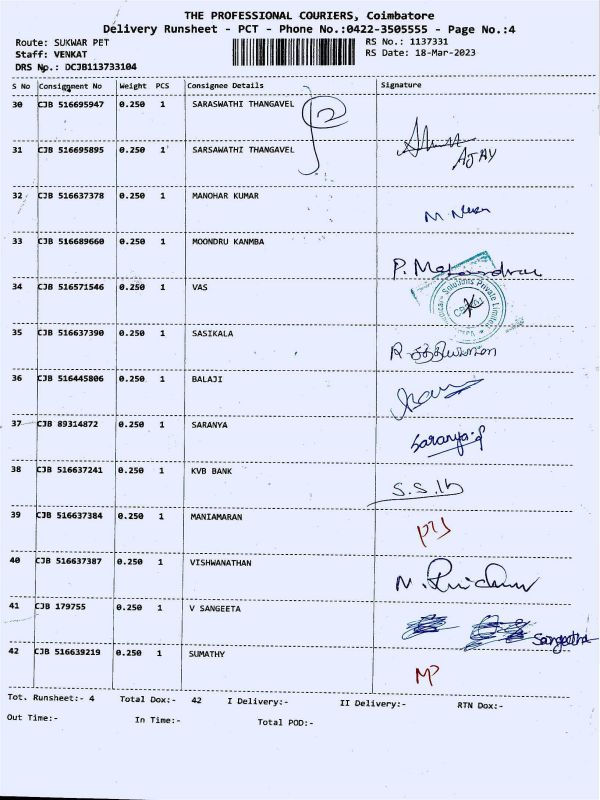 THE PROFESSIONAL COURIERS, Coimbatore
Delivery Runsheet - PCT - Phone No.:0422-3505555 - Page No.:4
Route: SUKWAR PET
RS No.: 1137331
Staff: VENKAT
RS Date: 18-Mar-2023
DRS No.: DCJB113733104
S No Consignment No Weight PCS Consignee Details Signature
30 CJB 516695947 0.250 1 SARASWATHI THANGAVEL
31 CJB 516695895 0.250 1 SARSAWATHI THANGAVEL AJAY
32 CJB 516637378 0.250 1 MANOHAR KUMAR
33 CJB 516689660 0.250 1 MOONDRU KANMBA
34 CJB 516571546 0.250 1 VAS
Solutions Private Limited
35 CJB 516637390 0.250 1 SASIKALA
36 CJB 516445806 0.250 1 BALAJI
37 CJB 89314872 0.250 1 SARANYA Saranya.
38 CJB 516637241 0.250 1 KVB BANK
39 CJB 516637384 0.250 1 MANIAMARAN
40 CJB 516637387 0.250 1 VISHWANATHAN
41 CJB 179755 0.250 1 V SANGEETA Sangeetha
42 CJB 516639219 0.250 1 SUMATHY
Tot. Runsheet:- 4 Total Dox:- 42 I Delivery:- II Delivery:- RTN Dox:-
Out Time:- In Time:- Total POD:-